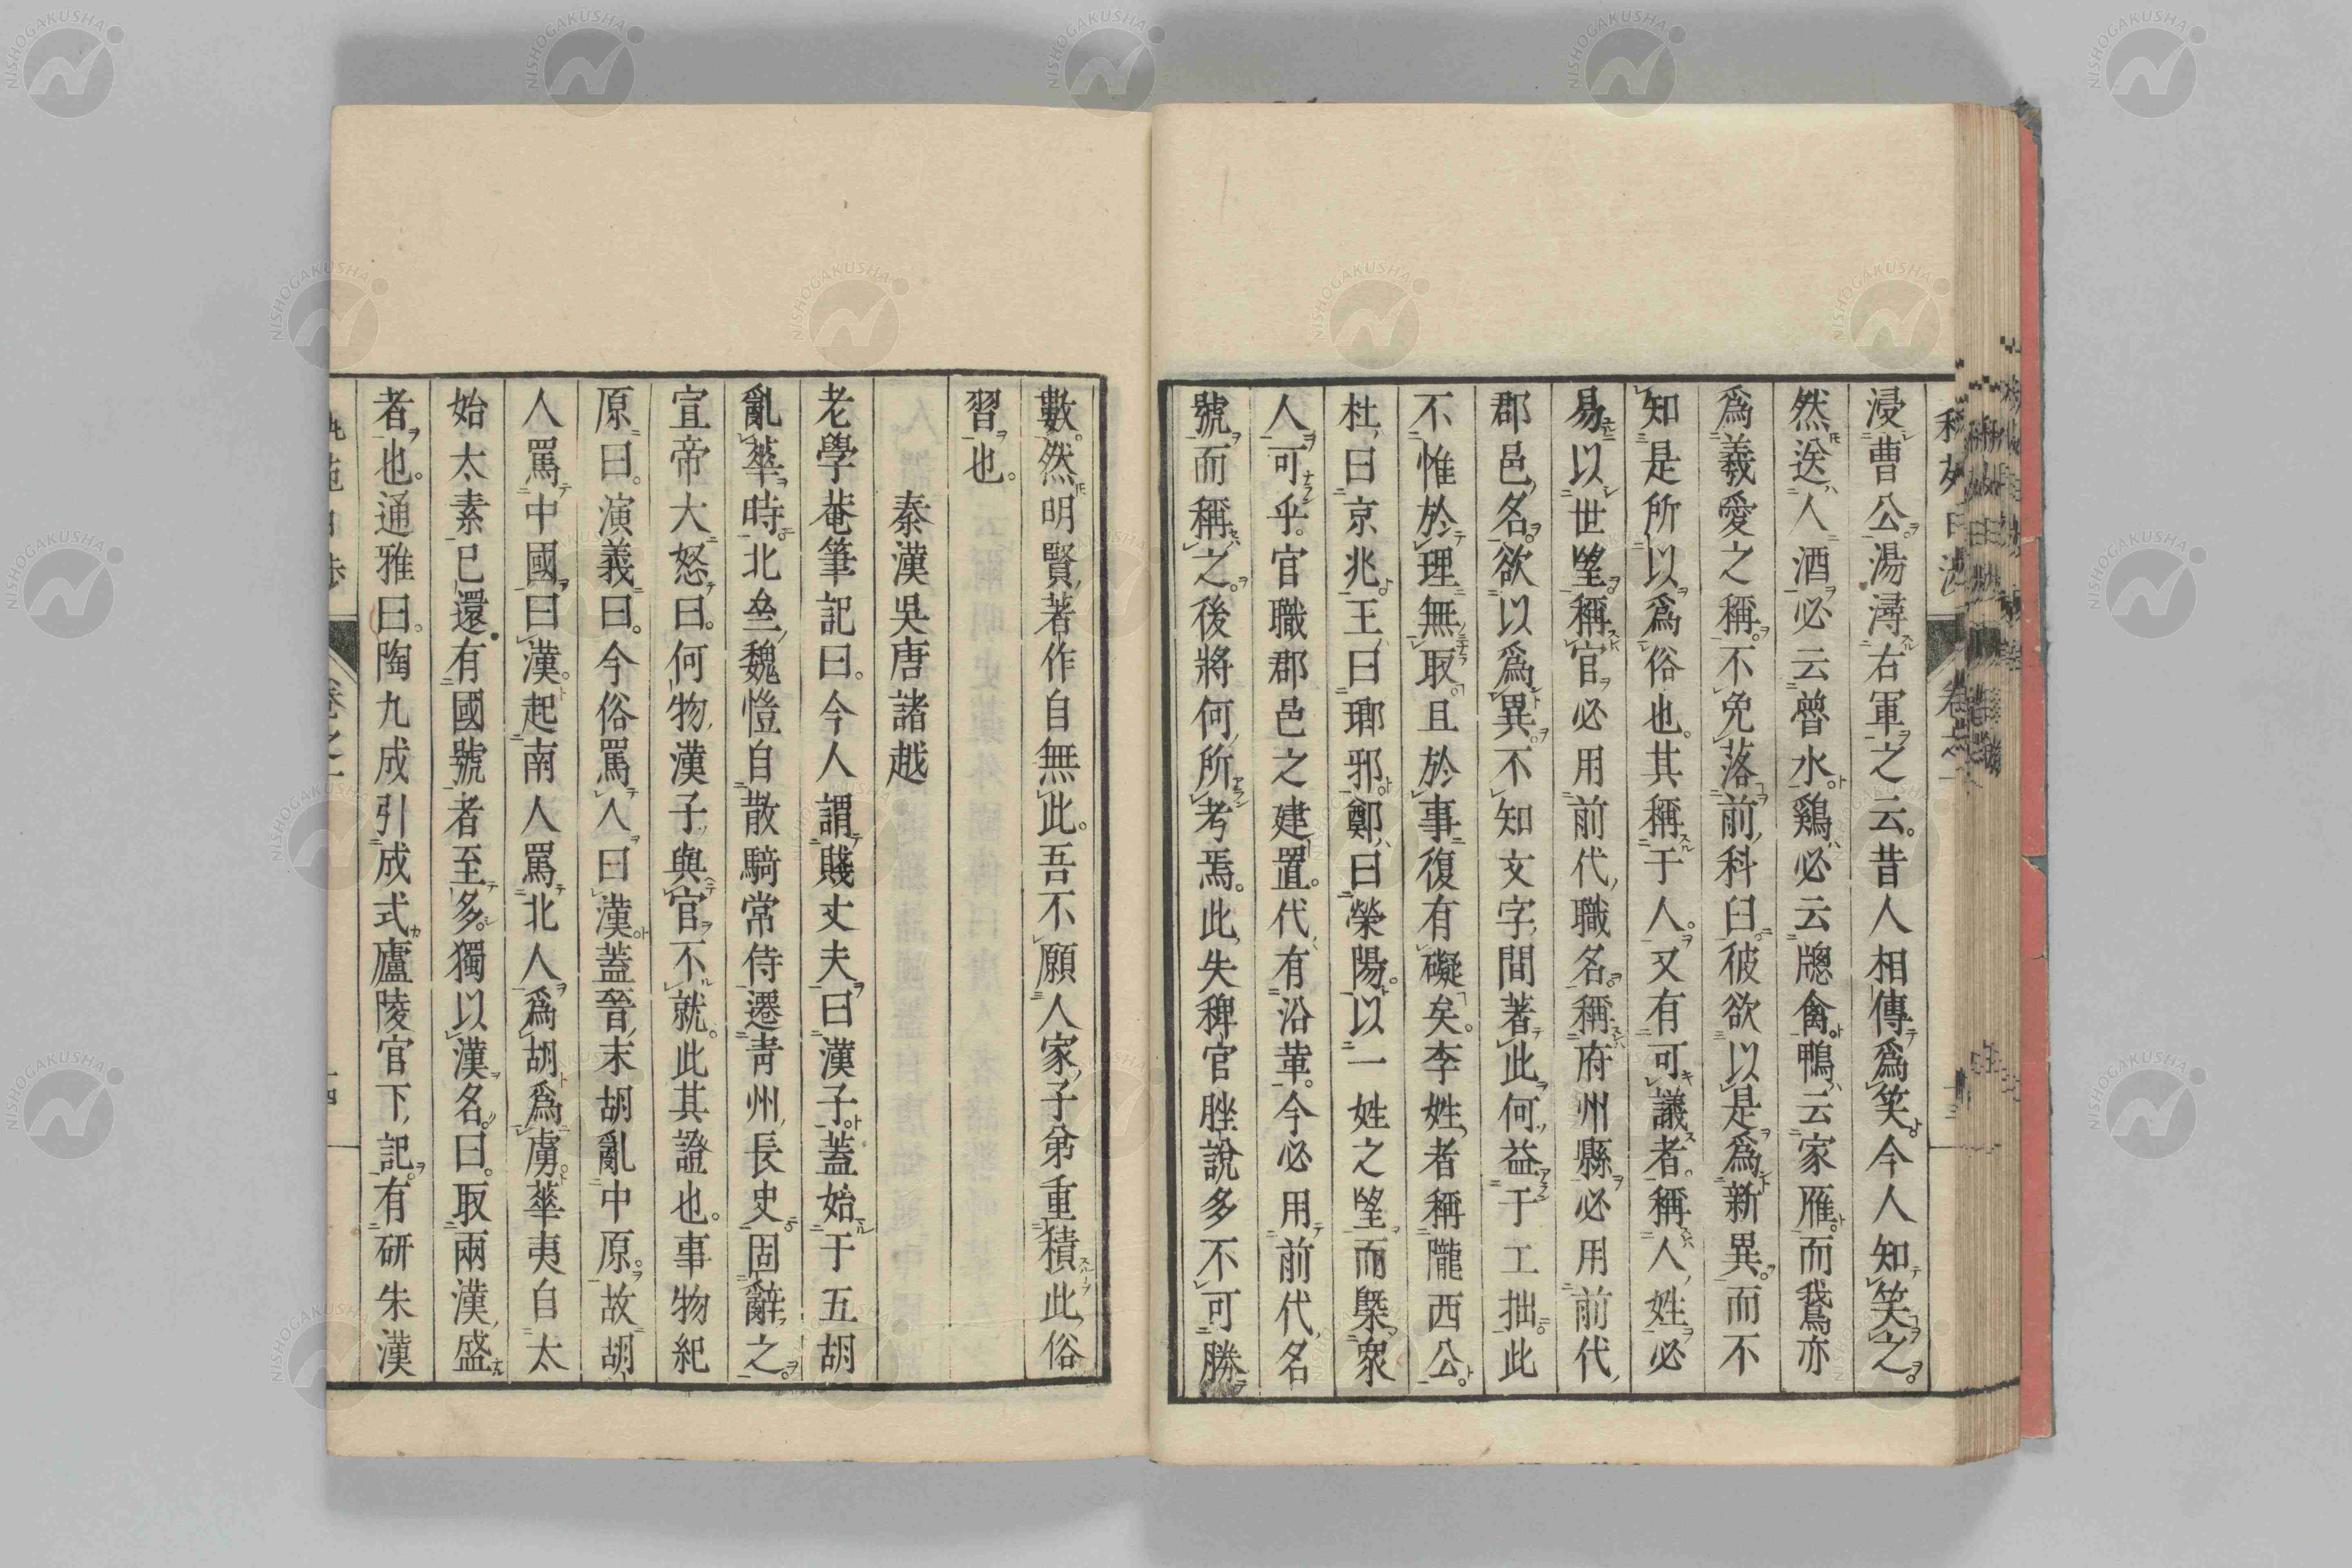 浸曹公湯潯右軍之云。昔人相傳爲笑今人知笑之。
然送人酒必云曾水。鷄必云牕禽鴨云家雁。而鵞亦
爲羲愛之稱。不免落前科臼。彼欲以是爲新異。而不
知是所以爲俗也。其稱于人。又有可議者。稱人姓必
易以世望稱官必用前代職名。稱府州縣必用前代
郡邑名。欲以爲異。不知文字間著此何益于工拙。此
不惟於理無取且於事復有礙矣。李姓者稱隴西公。
杜曰京兆王曰瑯邪。鄭曰滎陽。以一姓之望而槩衆
人可乎。官職郡邑之建置。代有沿革。今必用前代名
號而稱之。後將何所考焉。此失稗官脞說多不可勝
數。然明賢著作自無此。吾不願人家子弟重積此俗
習也。
秦漢吳唐諸越
老學菴筆記曰。今人謂賤丈夫曰漢子。蓋始于五胡
亂華時。北𠫤魏愷自散騎常侍遷青州長史。固辭之。
宣帝大怒曰。何物漢子與官不就。此其證也。事物紀
原曰。演義曰。今俗罵人曰漢蓋晉末胡亂中原。故胡
人罵中國曰漢。起南人罵北人爲胡爲虜。華夷自太
始太素已還。有國號者至多。獨以漢名。曰。取兩漢盛
者也。通雅曰。陶九成引成式廬陵官下記。有硏朱漢